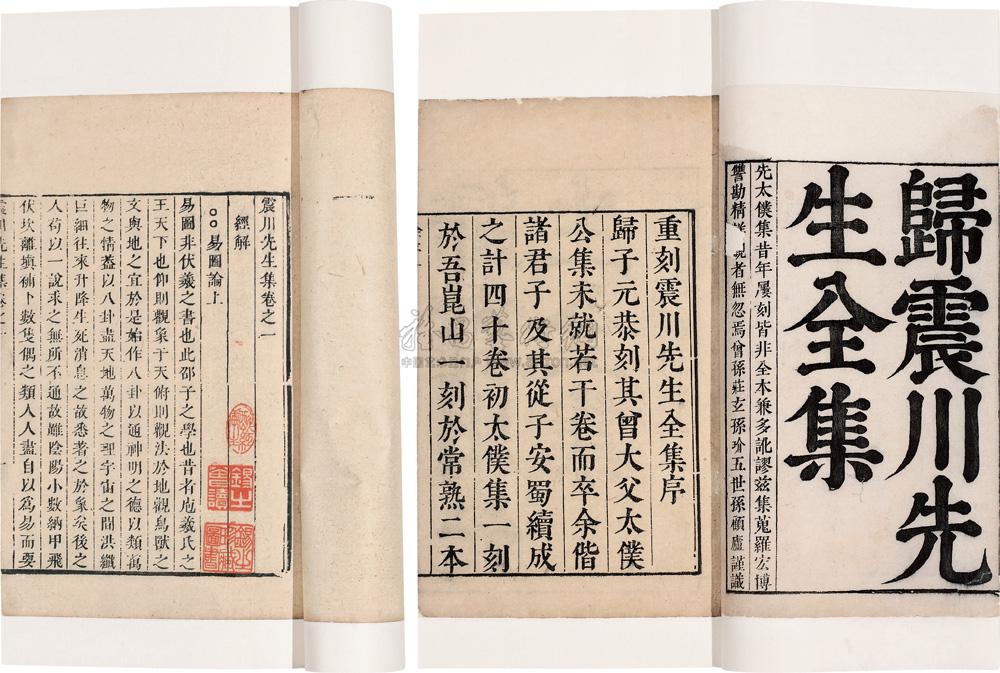 歸震川先
生全集
先太僕集昔年屢刻皆非全本兼多訛謬茲集蒐羅宏博
讐勘精 者無忽焉曾孫莊玄孫玠五世孫顧廬謹識
重刻震川先生全集序
歸子元恭刻其曾大父太僕
公集未就若干卷而卒余偕
諸君子及其從子安蜀續成
之計四十卷初太僕集一刻
於吾崑山一刻於常熟二本
震川先生集卷之一
經解
○○易圖論上
易圖非伏羲之書也此邵子之學也昔者庖羲氏之
王天下也仰則觀象于天俯則觀法於地觀鳥獸之
文與地之宜於是始作八卦以通神明之德以類萬
物之情蓋以八卦盡天地萬物之理宇宙之間洪纖
巨細往來升降生死消息之故悉著之於象矣後之
人苟以一說求之無所不通故雖陰陽小數納甲飛
伏坎離塡補卜數隻偶之類人人盡自以爲易而要
震川先生集卷之一